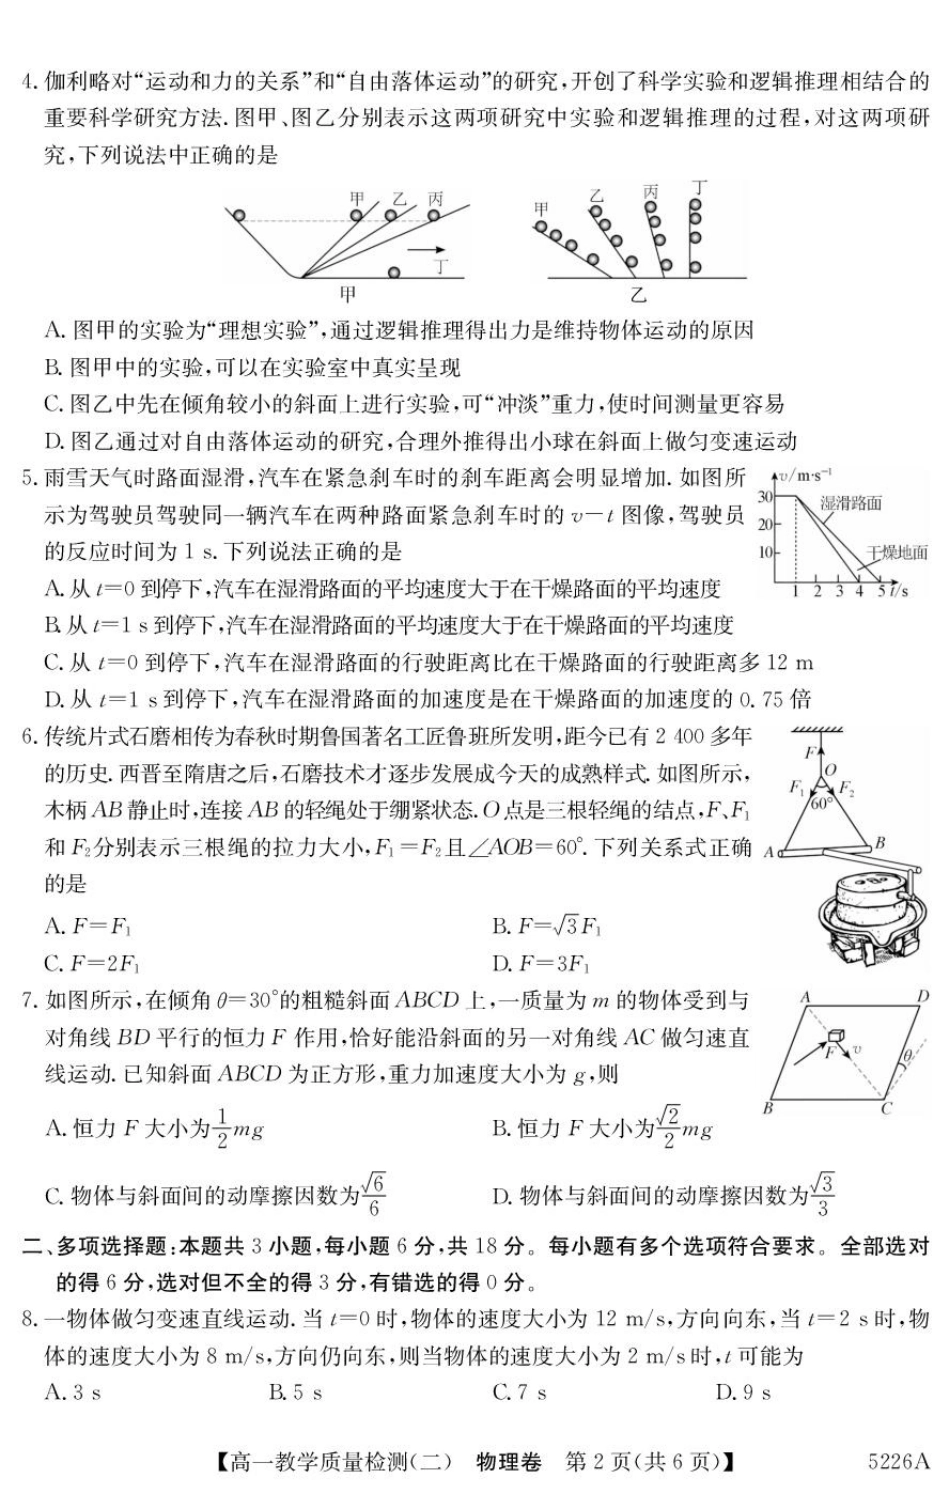 4. 伽利略对“运动和力的关系”和“自由落体运动”的研究,开创了科学实验和逻辑推理相结合的
重要科学研究方法. 图甲、图乙分别表示这两项研究中实验和逻辑推理的过程,对这两项研
究,下列说法中正确的是
甲 乙 丙
丁
甲
甲 乙 丙 丁
乙
A. 图甲的实验为“理想实验”,通过逻辑推理得出力是维持物体运动的原因
B. 图甲中的实验,可以在实验室中真实呈现
C. 图乙中先在倾角较小的斜面上进行实验,可“冲淡”重力,使时间测量更容易
D. 图乙通过对自由落体运动的研究,合理外推得出小球在斜面上做匀变速运动
5. 雨雪天气时路面湿滑,汽车在紧急刹车时的刹车距离会明显增加. 如图所
示为驾驶员驾驶同一辆汽车在两种路面紧急刹车时的 v－t 图像,驾驶员
的反应时间为 1 s. 下列说法正确的是
A. 从 t=0 到停下,汽车在湿滑路面的平均速度大于在干燥路面的平均速度
B. 从 t=1 s 到停下,汽车在湿滑路面的平均速度大于在干燥路面的平均速度
C. 从 t=0 到停下,汽车在湿滑路面的行驶距离比在干燥路面的行驶距离多 12 m
D. 从 t=1 s 到停下,汽车在湿滑路面的加速度是在干燥路面的加速度的 0.75 倍
v/m·s⁻¹
30
20
10
湿滑路面
干燥地面
1 2 3 4 5 t/s
6. 传统片式石磨相传为春秋时期鲁国著名工匠鲁班所发明,距今已有 2 400 多年
的历史. 西晋至隋唐之后,石磨技术才逐步发展成今天的成熟样式. 如图所示,
木柄 AB 静止时,连接 AB 的轻绳处于绷紧状态. O 点是三根轻绳的结点,F、F₁
和 F₂分别表示三根绳的拉力大小,F₁=F₂且∠AOB=60°. 下列关系式正确
的是
F
O
F₁ F₂
60°
A B
A. F=F₁ B. F=√3F₁
C. F=2F₁ D. F=3F₁
7. 如图所示,在倾角 θ=30°的粗糙斜面 ABCD 上,一质量为 m 的物体受到与
对角线 BD 平行的恒力 F 作用,恰好能沿斜面的另一对角线 AC 做匀速直
线运动. 已知斜面 ABCD 为正方形,重力加速度大小为 g,则
A D
F v θ
B C
A. 恒力 F 大小为 1/2 mg B. 恒力 F 大小为 √2/2 mg
C. 物体与斜面间的动摩擦因数为 √6/6 D. 物体与斜面间的动摩擦因数为 √3/3
二、多项选择题:本题共 3 小题,每小题 6 分,共 18 分。每小题有多个选项符合要求。全部选对
的得 6 分,选对但不全的得 3 分,有错选的得 0 分。
8. 一物体做匀变速直线运动. 当 t=0 时,物体的速度大小为 12 m/s,方向向东,当 t=2 s 时,物
体的速度大小为 8 m/s,方向仍向东,则当物体的速度大小为 2 m/s 时,t 可能为
A. 3 s B. 5 s C. 7 s D. 9 s
【高一教学质量检测(二) 物理卷 第 2 页(共 6 页)】 5226A